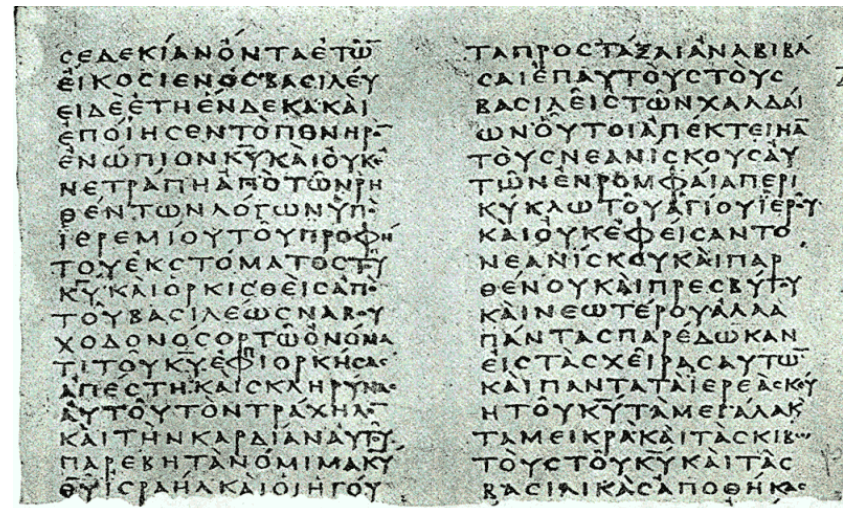 ϹΕΔΕΚΙΑΝΟΝΤΑΕΤΩ̅
ΕΙΚΟϹΙΕΝΟϹΒΑϹΙΛΕΥ
ΕΙΔΕΕΤΗΕΝΔΕΚΑΚΑΙ
ΕΠΟΙΗϹΕΝΤΟΠΟΝΗΡΟ̅
ΕΝΩΠΙΟΝΚ̅Υ̅ΚΑΙΟΥΚΕ
ΝΕΤΡΑΠΗΑΠΟΤΩΝΡΗ
ΘΕΝΤΩΝΛΟΓΩΝΥΠΟ
ΪΕΡΕΜΙΟΥΤΟΥΠΡΟΦΗ
ΤΟΥΕΚϹΤΟΜΑΤΟϹΤΟΥ
Κ̅Υ̅ΚΑΙΟΡΚΙϹΘΕΙϹΑΠΟ
ΤΟΥΒΑϹΙΛΕΩϹΝΑΒΟΥ
ΧΟΔΟΝΟϹΟΡΤΩΟΝΟΜΑ
ΤΙΤΟΥΚ̅Υ̅ΕΦΙΟΡΚΗϹΑϹ
ΑΠΕϹΤΗΚΑΙϹΚΛΗΡΥΝΑϹ
ΑΥΤΟΥΤΟΝΤΡΑΧΗΛΟ̅
ΚΑΙΤΗΝΚΑΡΔΙΑΝΑΥΤΟΥ
ΠΑΡΕΒΗΤΑΝΟΜΙΜΑΚ̅Υ̅
Θ̅Υ̅ΙϹΡΑΗΛΚΑΙΟΙΗΓΟΥ
ΤΑΠΡΟϹΤΑΞΑΙΑΝΑΒΙΒΑ
ϹΑΙΕΠΑΥΤΟΥϹΤΟΥϹ
ΒΑϹΙΛΕΙϹΤΩΝΧΑΛΔΑΙ
ΩΝΟΥΤΟΙΑΠΕΚΤΕΙΝΑ̅
ΤΟΥϹΝΕΑΝΙϹΚΟΥϹΑΥ
ΤΩΝΕΝΡΟΜΦΑΙΑΠΕΡΙ
ΚΥΚΛΩΤΟΥΑΓΙΟΥΪΕΡΟΥ
ΚΑΙΟΥΚΕΦΕΙϹΑΝΤΟ
ΝΕΑΝΙϹΚΟΥΚΑΙΠΑΡ
ΘΕΝΟΥΚΑΙΠΡΕϹΒΥΤΟΥ
ΚΑΙΝΕΩΤΕΡΟΥΑΛΛΑ
ΠΑΝΤΑϹΠΑΡΕΔΩΚΑΝ
ΕΙϹΤΑϹΧΕΙΡΑϹΑΥΤΩ̅
ΚΑΙΠΑΝΤΑΤΑΪΕΡΕΑϹΚΟΥ
ΗΤΟΥΚ̅Υ̅ΤΑΜΕΓΑΛΑΚ
ΤΑΜΕΙΚΡΑΚΑΙΤΑϹΚΙΒΩ
ΤΟΥϹΤΟΥΚ̅Υ̅ΚΑΙΤΑϹ
ΒΑϹΙΛΙΚΑϹΑΠΟΘΗΚΑϹ